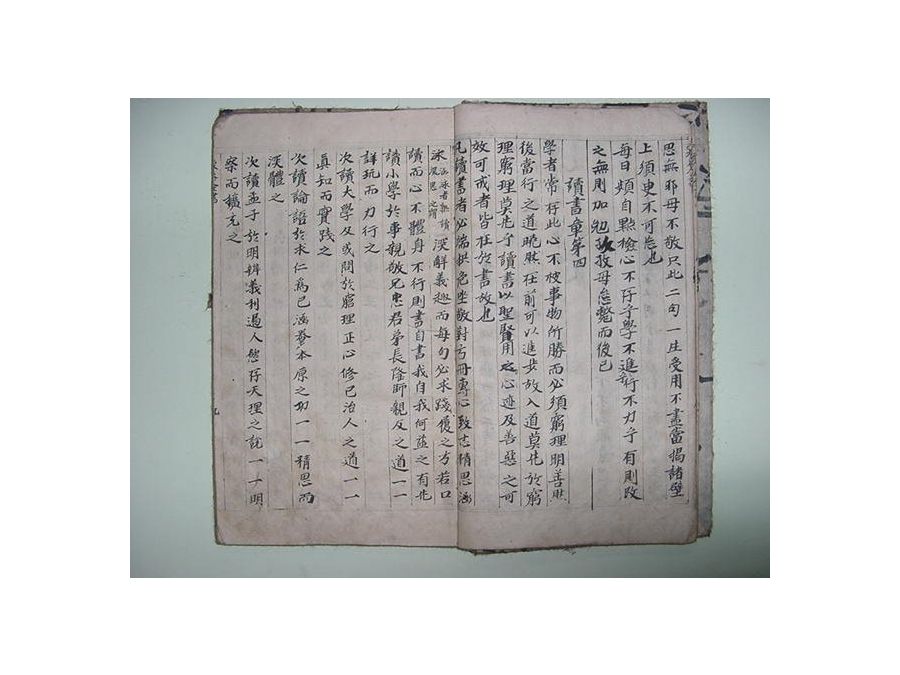 思無邪毋不敬只此二句一生受用不盡當揭諸壁
上須臾不可忘也
每日頻自點檢心不存乎學不進乎行不力乎有則改
之無則加勉孜孜毋怠斃而後已
讀書章第四
學者常存此心不被事物所勝而必須窮理明善然
後當行之道曉然在前可以進步故入道莫先於窮
理窮理莫先乎讀書以聖賢用之心迹及善惡之可
效可戒者皆在於書故也
凡讀書者必端拱危坐敬對方冊專心致志精思涵
泳涵泳者熟讀深思之謂深解義趣而每句必求踐履之方若口
讀而心不體身不行則書自書我自我何益之有先
讀小學於事親敬兄忠君弟長隆師親友之道一一
詳玩而力行之
次讀大學及或問於窮理正心修己治人之道一一
眞知而實踐之
次讀論語於求仁爲己涵養本原之功一一精思而
深體之
次讀孟子於明辨義利遏人慾存天理之說一一明
察而擴充之